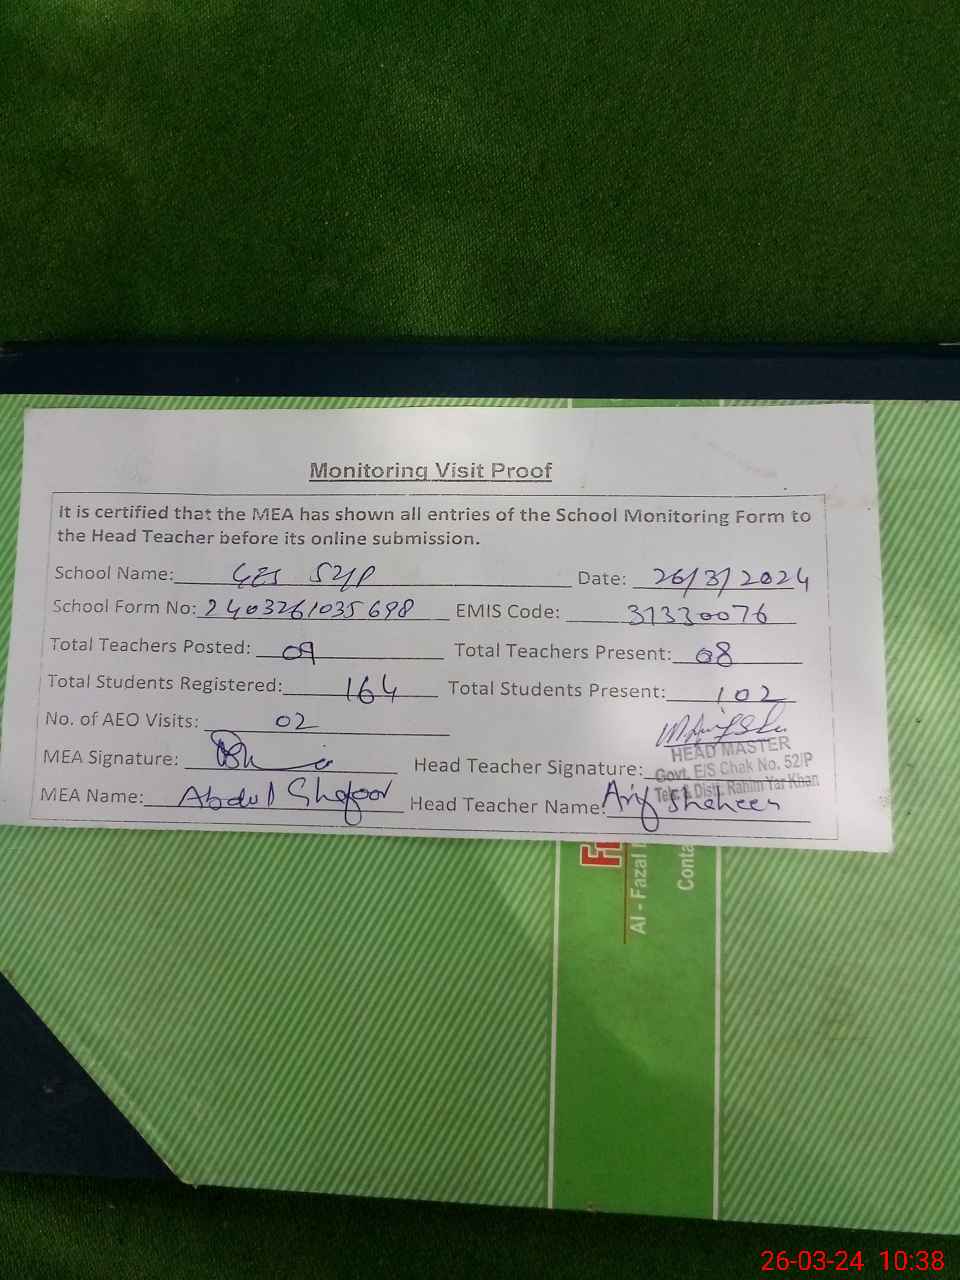 Monitoring Visit Proof
It is certified that the MEA has shown all entries of the School Monitoring Form to
the Head Teacher before its online submission.
School Name: GES 52/P Date: 26/3/2024
School Form No: 2403261035698 EMIS Code: 31330076
Total Teachers Posted: 09 Total Teachers Present: 08
Total Students Registered: 164 Total Students Present: 102
No. of AEO Visits: 02
MEA Signature: Head Teacher Signature:
HEAD MASTER
Govt. E/S Chak No. 52/P
Teh: & Distt: Rahim Yar Khan
MEA Name: Abdul Ghafoor Head Teacher Name: Arif Shaheen
Al - Fazal
Conta
26-03-24 10:38